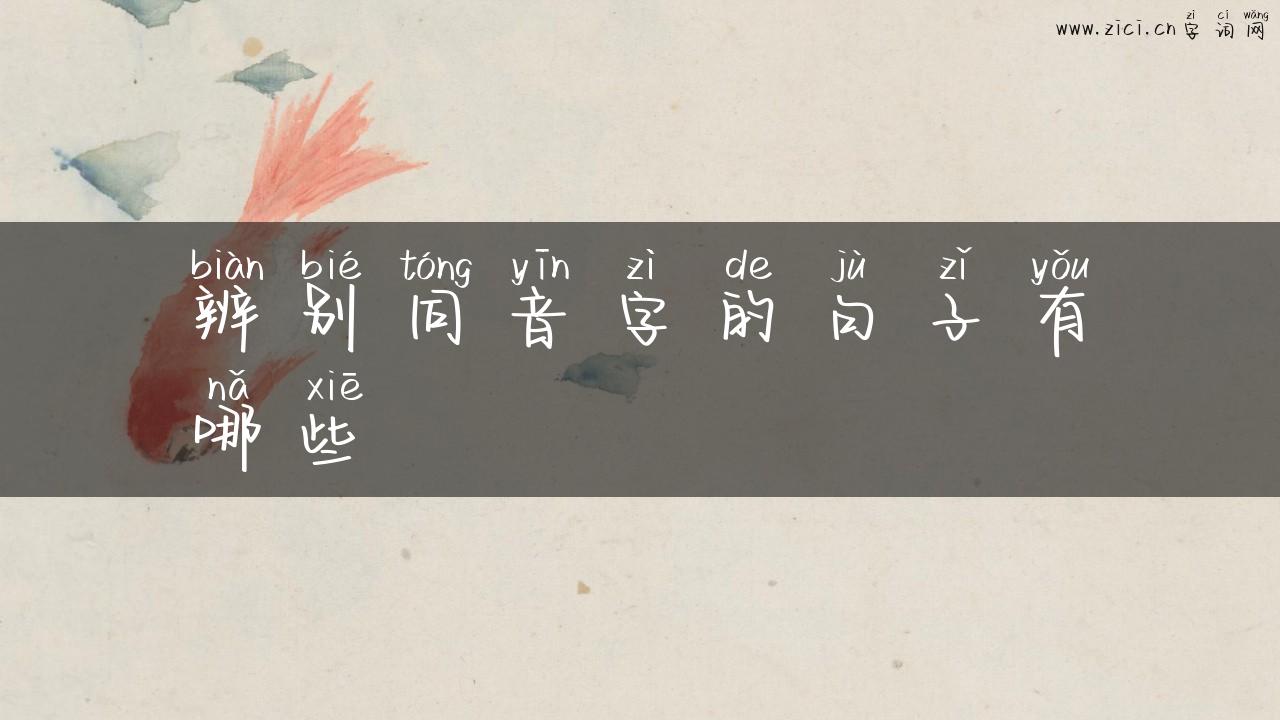 zì cí wǎng
www.zici.cn 字 词 网
biàn bié tóng yīn zì de jù zǐ yǒu
辨 别 同 音 字 的 句 子 有
nǎ xiē
哪 些